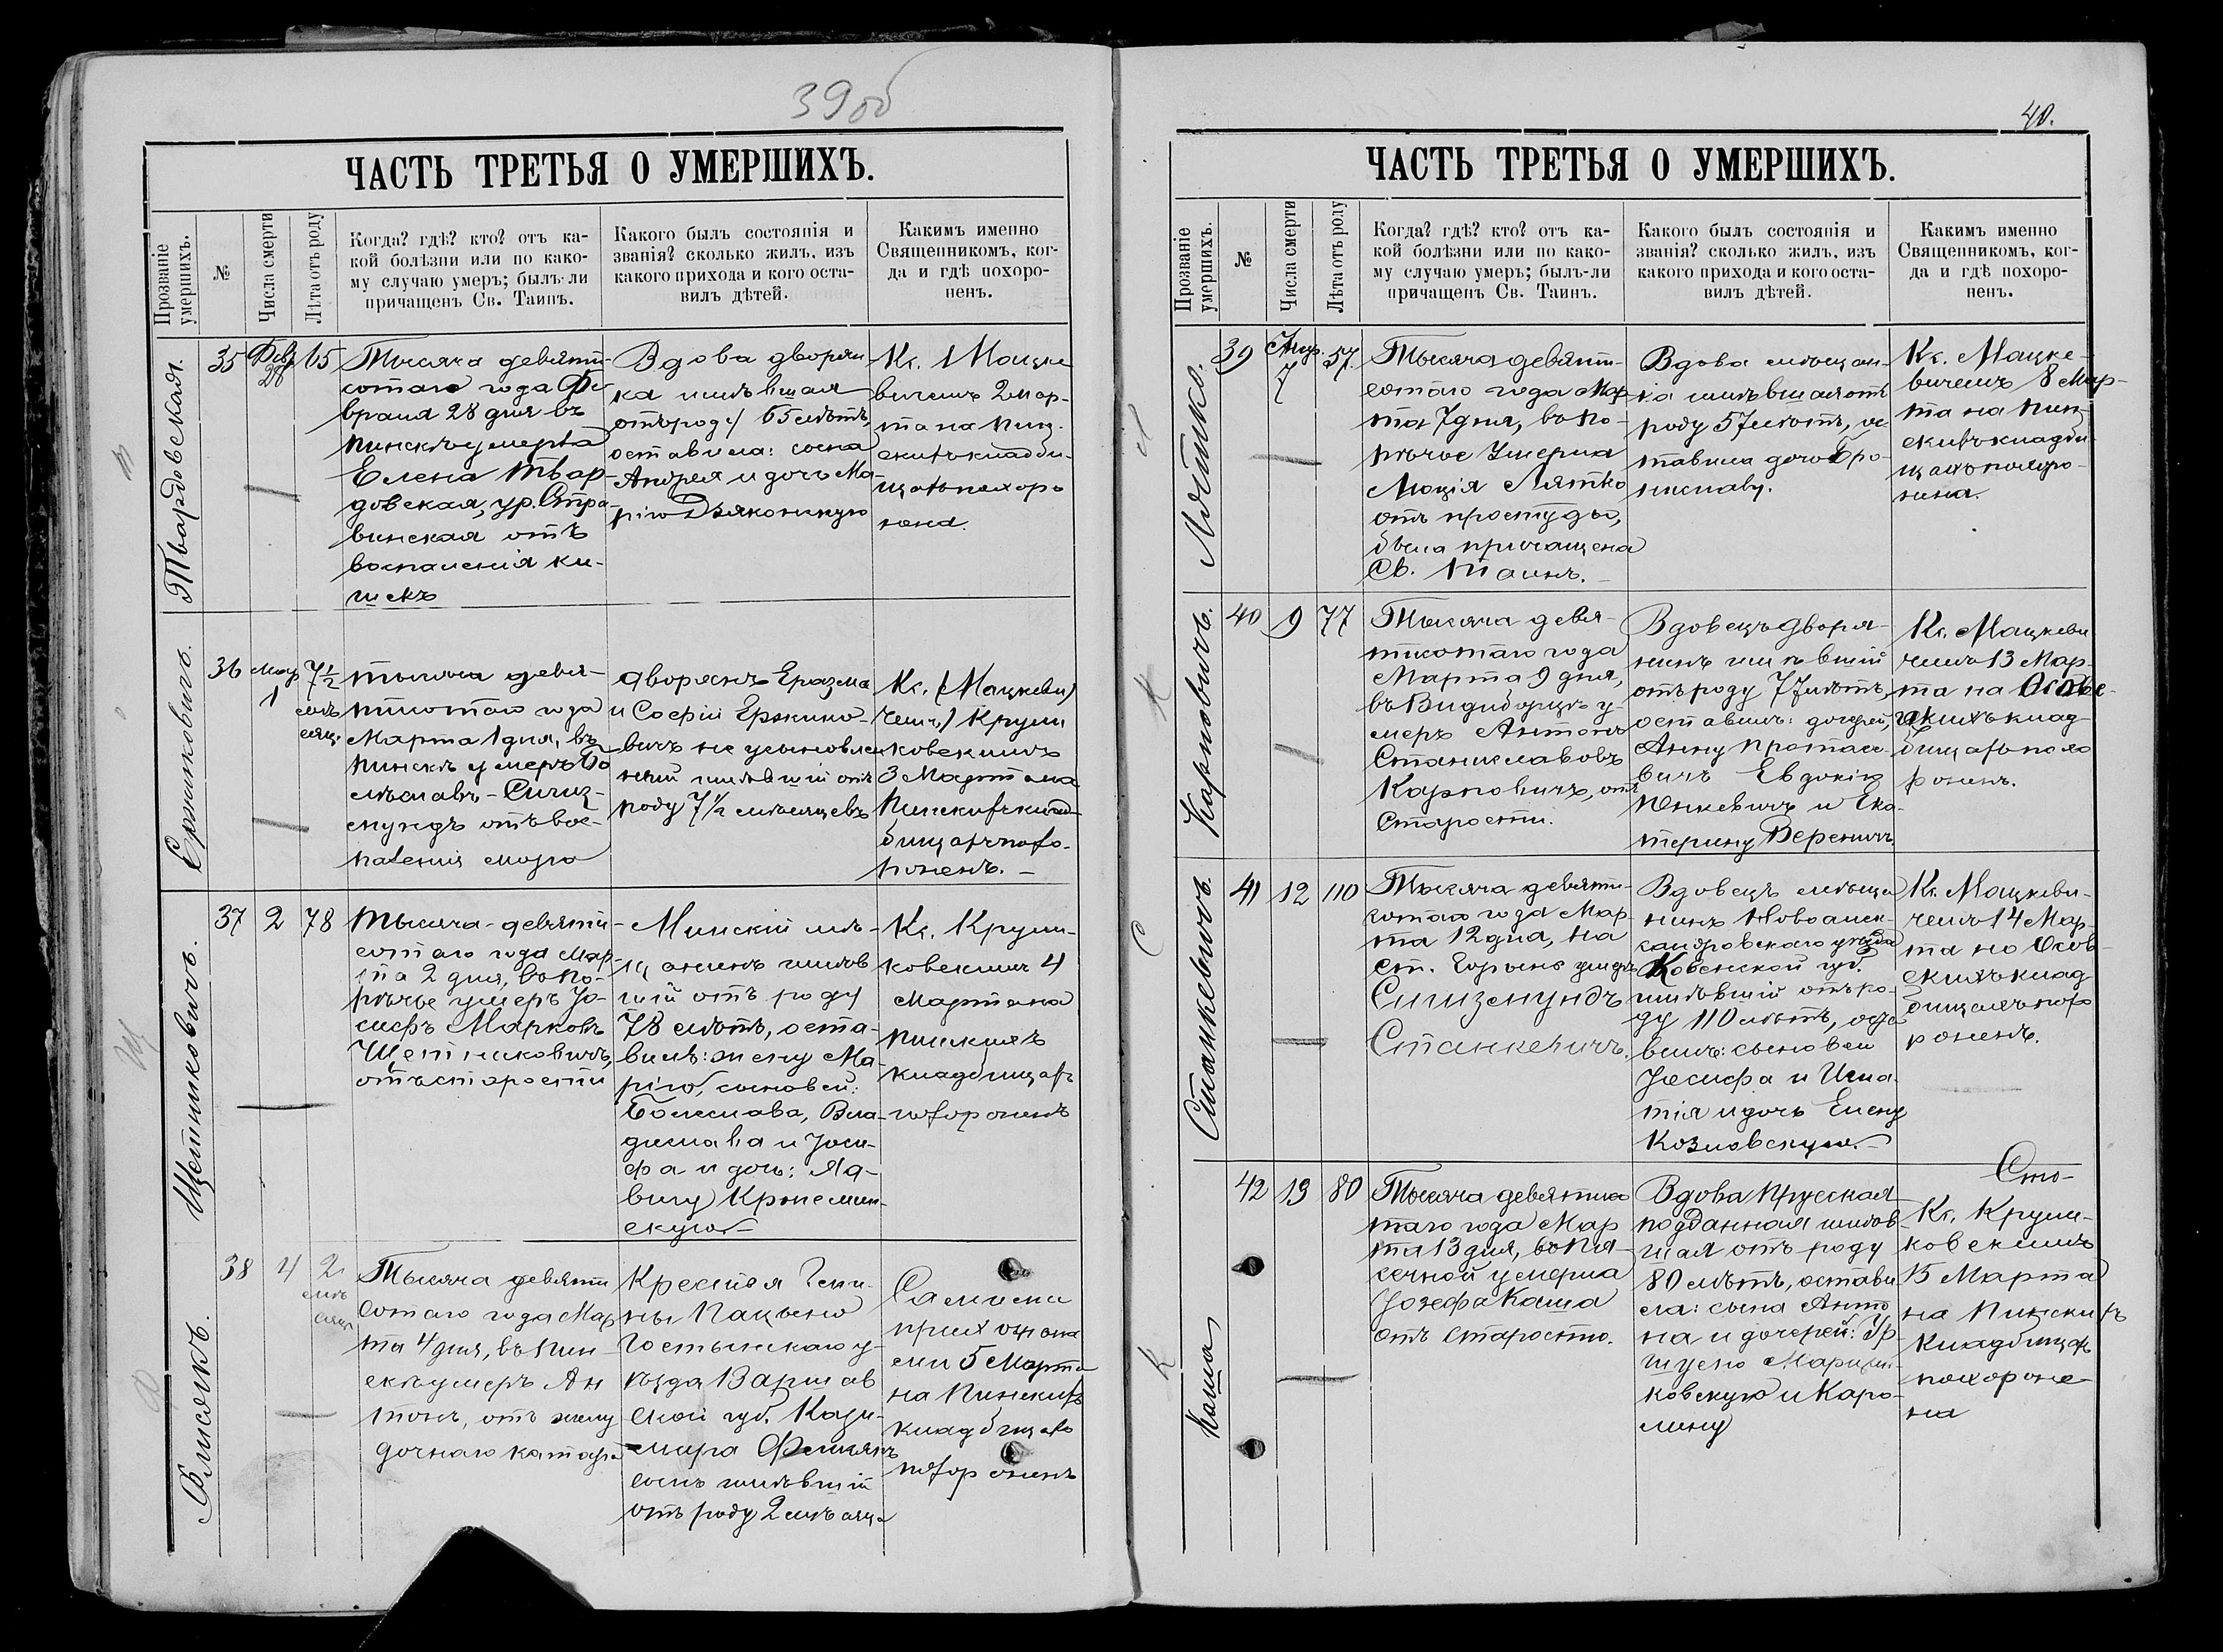 39об
ЧАСТЬ ТРЕТЬЯ О УМЕРШИХЪ.
Прозваніе умершихъ.
№
Числа смерти
Лѣта отъ роду
Когда? гдѣ? кто? отъ ка-
кой болѣзни или по како-
му случаю умеръ; былъ-ли
причащенъ Св. Таинъ.
Какого былъ состоянія и
званія? сколько жилъ, изъ
какого прихода и кого оста-
вилъ дѣтей.
Какимъ именно
Священникомъ, ког-
да и гдѣ похоро-
ненъ.
Твардовская.
35
Февр
28
65
Тысяча девяти-
сотаго года Фе
враля 28 дня въ
Пинскѣ умерла
Елена Твар-
довская, ур. Стра
винская отъ
воспаленія ки-
шекъ
Вдова дворян
ка жившая
отъ роду 65 лѣтъ,
оставила: сына
Андрея и дочь Ма-
рію Дзяконскую
Кс. Мацке
вичемъ 2 мар-
та на Пин-
скихъ кладби-
щахъ похоро
нена.
36
Мар
1
7½
мѣ
сяц.
тысяча девя-
тисотаго года
Марта 1 дня, въ
Пинскѣ умеръ Бо
леславъ-Сигиз-
мундъ отъ вос-
паленія мозга
дворянъ Еразма
и Софіи
вичъ не усыновлен
ный жившій отъ
роду 7½ мѣсяцевъ
Кс. (Мацкеви
чемъ) Крум
ковскимъ
3 Марта на
Пинскихъ клад
бищахъ похо-
роненъ. —
Щетниковичъ.
37
2
78
Тысяча-девяти-
сотаго года Мар-
та 2 дня, въ По-
рѣчье умеръ Іо-
сифъ Марковъ
Щетниковичъ,
отъ старости
Минскій мѣ-
щанинъ жив
шій отъ роду
78 лѣтъ, оста-
вилъ: жену Ма-
рію, сыновей:
Болеслава, Вла-
дислава и Іоси-
фа и дочь: Яд-
вигу
скую. —
Кс. Крум-
ковскимъ 4
Марта на
Пинскихъ
кладбищахъ
похороненъ
Флисякъ.
38
4
2
мѣ
сяца
Тысяча девяти
сотаго года Мар
та 4 дня, въ Пин
скѣ умеръ Ан
тонъ, отъ желу
дочнаго катара
Крестья Гми-
ны Пацына
Гостынскаго у-
ѣзда Варшав
ской губ. Кази-
мира Флисякъ
сынъ жившій
отъ роду 2 мѣсяца
Самими
прихожана
ми 5 Марта
на Пинскихъ
кладбищахъ
похороненъ
40.
ЧАСТЬ ТРЕТЬЯ О УМЕРШИХЪ.
Прозваніе умершихъ.
№
Числа смерти
Лѣта отъ роду
Когда? гдѣ? кто? отъ ка-
кой болѣзни или по како-
му случаю умеръ; былъ-ли
причащенъ Св. Таинъ.
Какого былъ состоянія и
званія? сколько жилъ, изъ
какого прихода и кого оста-
вилъ дѣтей.
Какимъ именно
Священникомъ, ког-
да и гдѣ похоро-
ненъ.
39
7
57.
Тысяча девяти-
сотаго года Мар
та 7 дня, въ По-
рѣчье умерла
Лятко
отъ простуды,
была причащена
Св. Таинъ. —
Вдова мѣщан-
ка жившая отъ
роду 57 лѣтъ, ос
тавила дочь Бро-
ниславу.
Кс. Мацке-
вичемъ 8 Мар-
та на Пин-
скихъ кладби-
щахъ похоро-
нена.
Карповичъ.
40
9
77
Тысяча девя-
тисотаго года
Марта 9 дня,
въ Видиборцѣ у-
меръ Антонъ
Станиславовъ
Карповичъ, отъ
Старости.
Вдовецъ дворя-
нинъ жившій
отъ роду 77 лѣтъ,
оставилъ: дочерей,
Анну Протасе-
вичъ Евдокію
Пенкевичъ и Ека-
терину Вереничъ.
Кс. Мацкеви
чемъ 13 Мар-
та на
клад
бищахъ похо
роненъ.
Станкевичъ.
41
12
110
Тысяча девяти-
сотаго года Мар-
та 12 дня, на
ст. Горынь умеръ
Сигизмундъ
Станкевичъ.
Вдовецъ мѣща
нинъ Новоалек-
сандровскаго уѣзда
Ковенской губ.
жившій отъ ро-
ду 110 лѣтъ, оста
вилъ: сыновей
Іосифа и Игна-
тія и дочь Елену
Козловскую. —
Кс. Мацкеви-
чемъ 14 Мар-
та на Осов-
скихъ клад
бищахъ похо
роненъ.
Каша
42
13
80
Тысяча девятисо
таго года Мар
та 13 дня, въ Пя-
сечной умерла
Іозефа Каша
отъ старости.
Вдова Прусская
подданная жив
шая отъ роду
80 лѣтъ, остави
ла: сына Анто
на и дочерей: Ур-
шулю Марцин-
ковскую и Каро-
лину
Сто-
Кс. Крум-
ковскимъ
15 Марта
на Пинскихъ
кладбищахъ
похороне-
на